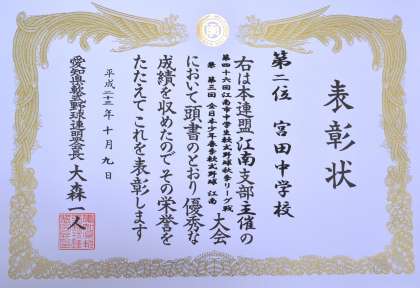 表彰状
第二位 宮田中学校
右は本連盟江南支部主催の
第四十六回江南市中学生軟式野球秋季リーグ戦
兼 第三回 全日本少年春季軟式野球 江南
大会
において頭書のとおり優秀な
成績を収めたので その栄誉を
たたえて これを表彰します
平成二十三年十月九日
愛知県軟式野球連盟会長 大森一人